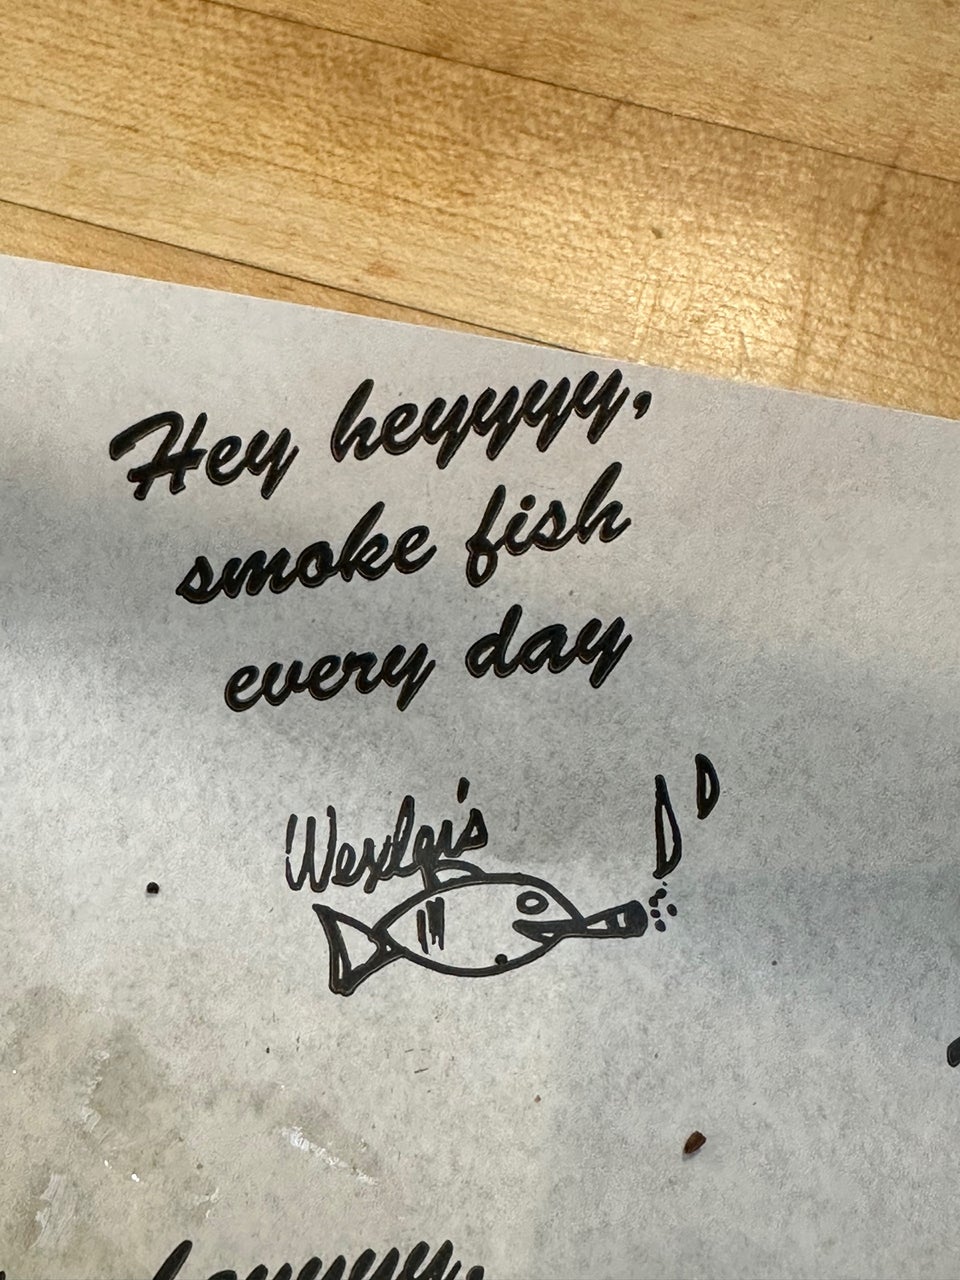 Hey heyyyy,
smoke fish
every day
Wexler's
heyyyy,